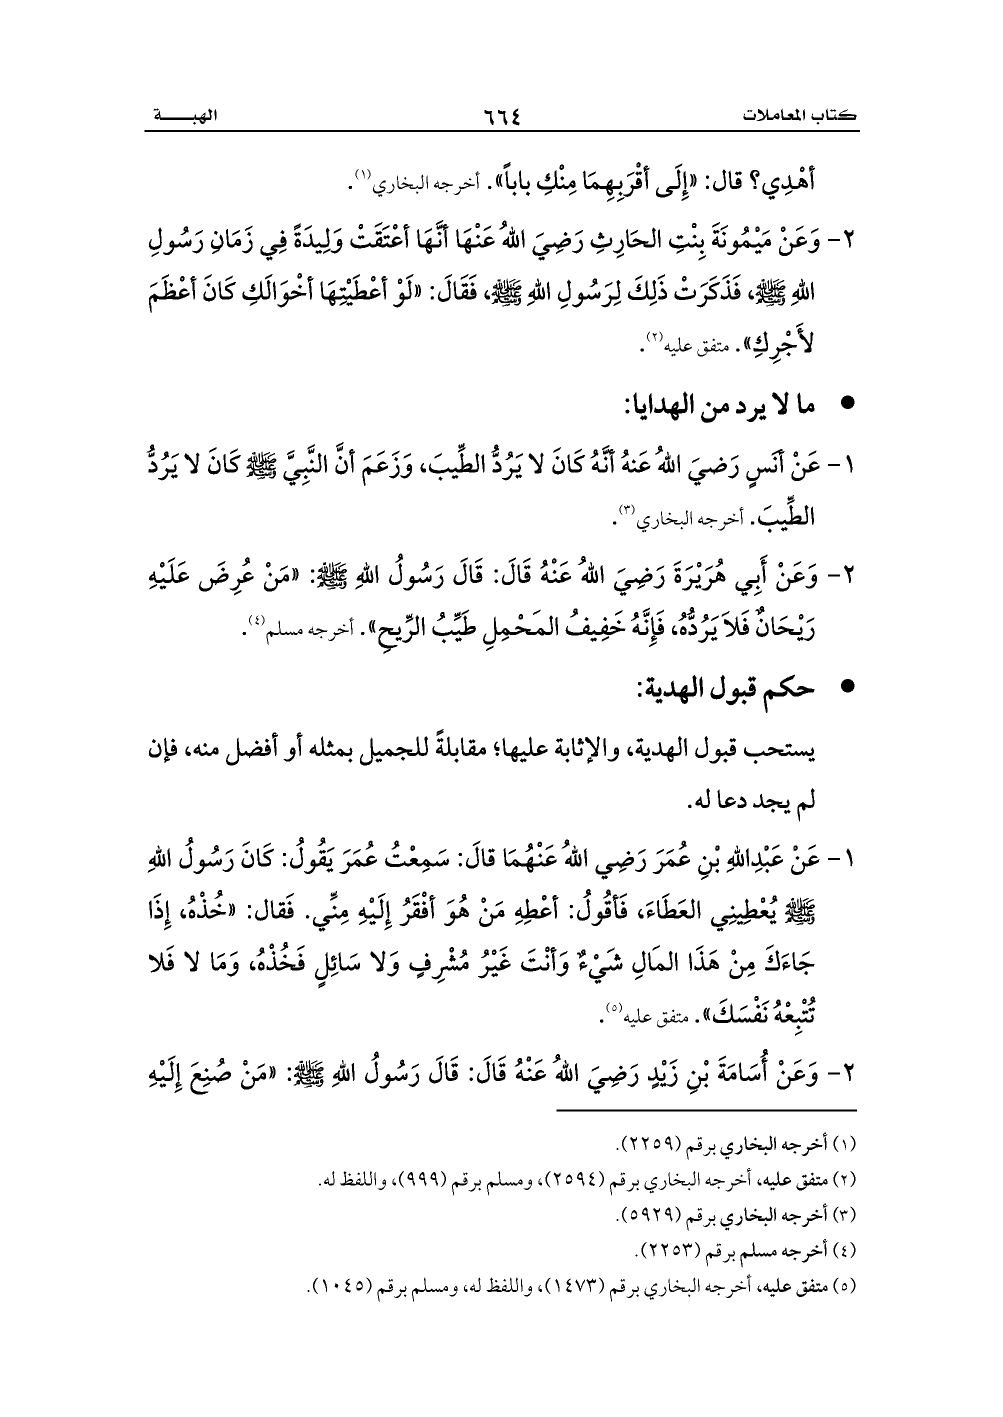 كتاب المعاملات ٦٦٤ الهبـــــة
أهْدِي؟ قال: «إِلَى أقْرَبِهِمَا مِنْكِ باباً». أخرجه البخاري(١).
٢- وَعَنْ مَيْمُونَةَ بِنْتِ الحَارِثِ رَضِيَ اللهُ عَنْهَا أنَّهَا أعْتَقَتْ وَلِيدَةً فِي زَمَانِ رَسُولِ
اللهِ ﷺ، فَذَكَرَتْ ذَلِكَ لِرَسُولِ اللهِ ﷺ، فَقَالَ: «لَوْ أعْطَيْتِهَا أخْوَالَكِ كَانَ أعْظَمَ
لأَجْرِكِ». متفق عليه(٢).
● ما لا يرد من الهدايا:
١- عَنْ أنَسٍ رَضيَ اللهُ عَنهُ أنَّهُ كَانَ لا يَرُدُّ الطِّيبَ، وَزَعَمَ أنَّ النَّبِيَّ ﷺ كَانَ لا يَرُدُّ
الطِّيبَ. أخرجه البخاري(٣).
٢- وَعَنْ أَبِي هُرَيْرَةَ رَضِيَ اللهُ عَنْهُ قَالَ: قَالَ رَسُولُ اللهِ ﷺ: «مَنْ عُرِضَ عَلَيْهِ
رَيْحَانٌ فَلاَ يَرُدُّهُ، فَإِنَّهُ خَفِيفُ المَحْمِلِ طَيِّبُ الرِّيحِ». أخرجه مسلم(٤).
● حكم قبول الهدية:
يستحب قبول الهدية، والإثابة عليها؛ مقابلةً للجميل بمثله أو أفضل منه، فإن
لم يجد دعا له.
١- عَنْ عَبْدِاللهِ بْنِ عُمَرَ رَضِيَ اللهُ عَنْهُمَا قالَ: سَمِعْتُ عُمَرَ يَقُولُ: كَانَ رَسُولُ اللهِ
ﷺ يُعْطِينِي العَطَاءَ، فَأقُولُ: أعْطِهِ مَنْ هُوَ أفْقَرُ إِلَيْهِ مِنِّي. فَقال: «خُذْهُ، إِذَا
جَاءَكَ مِنْ هَذَا المَالِ شَيْءٌ وَأنْتَ غَيْرُ مُشْرِفٍ وَلا سَائِلٍ فَخُذْهُ، وَمَا لا فَلا
تُتْبِعْهُ نَفْسَكَ». متفق عليه(٥).
٢- وَعَنْ أُسَامَةَ بْنِ زَيْدٍ رَضِيَ اللهُ عَنْهُ قَالَ: قَالَ رَسُولُ اللهِ ﷺ: «مَنْ صُنِعَ إِلَيْهِ
(١) أخرجه البخاري برقم (٢٢٥٩).
(٢) متفق عليه، أخرجه البخاري برقم (٢٥٩٤)، ومسلم برقم (٩٩٩)، واللفظ له.
(٣) أخرجه البخاري برقم (٥٩٢٩).
(٤) أخرجه مسلم برقم (٢٢٥٣).
(٥) متفق عليه، أخرجه البخاري برقم (١٤٧٣)، واللفظ له، ومسلم برقم (١٠٤٥).